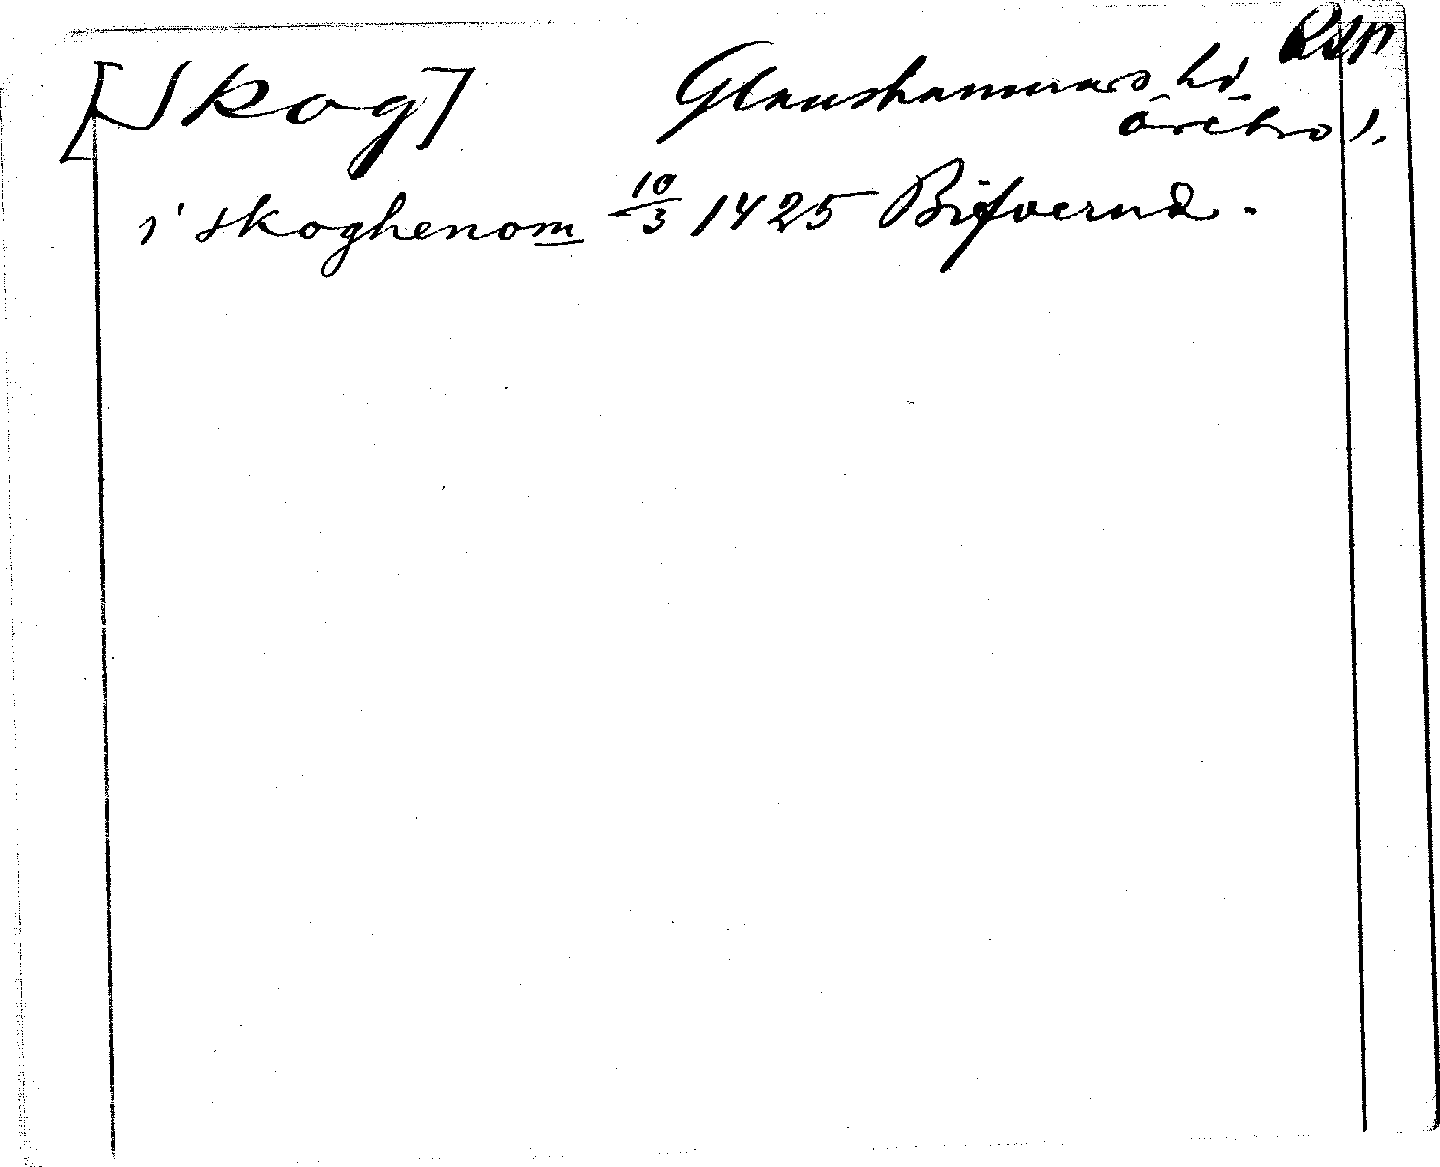 RAp
[Skog] Glanshammars hd.
Örebro l.
i skoghenom 10/3 1425 Bifverud.